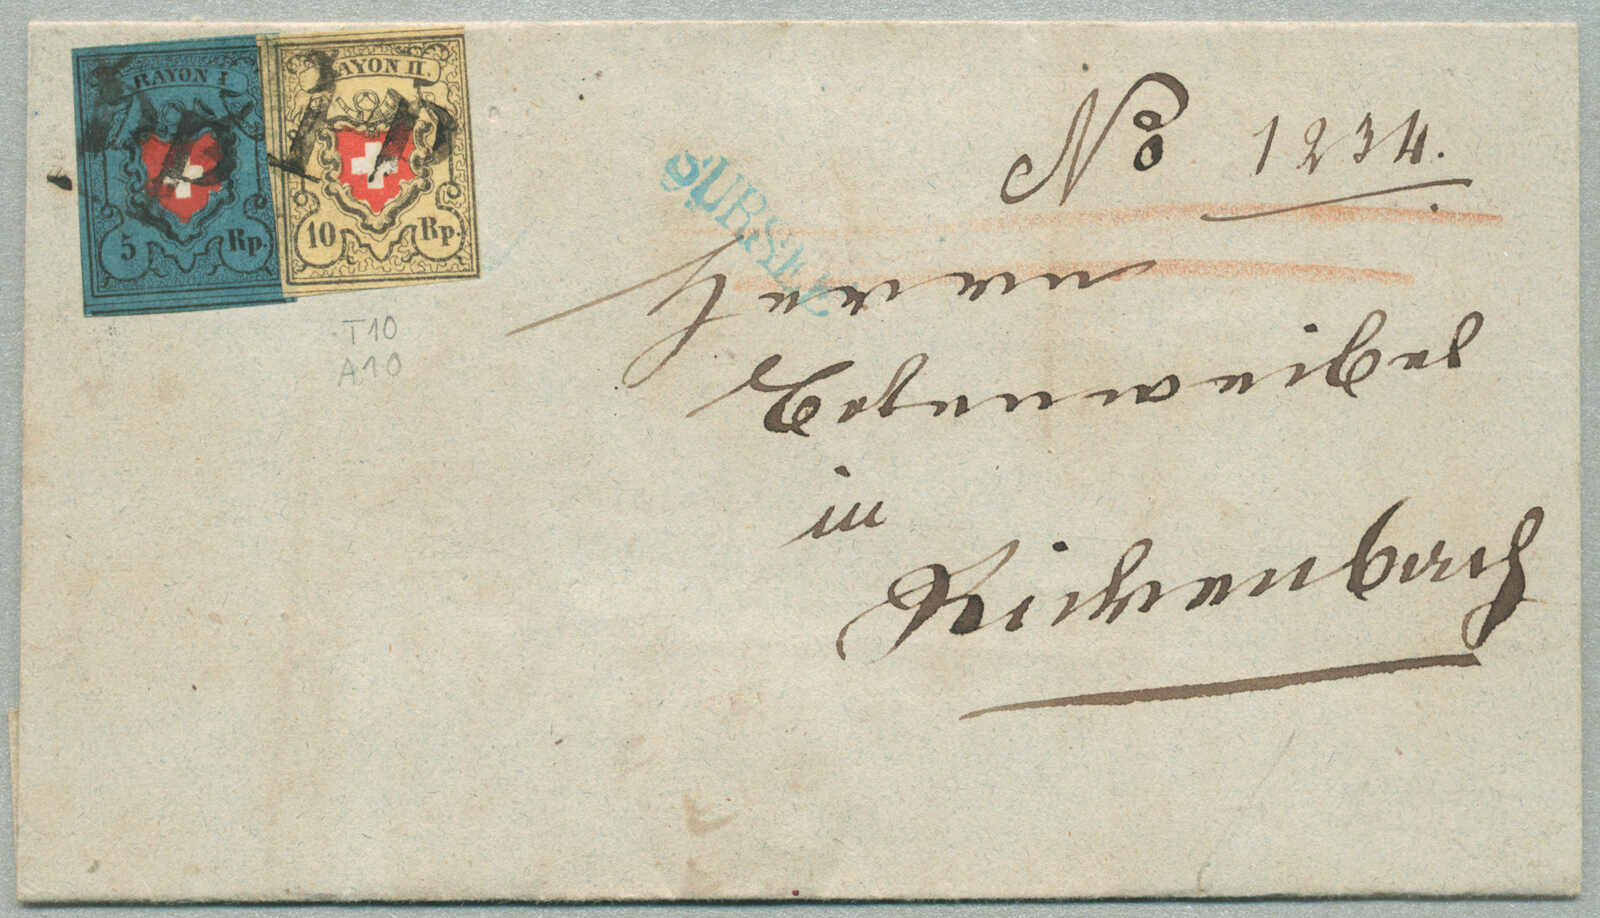 RAYON I
5 Rp.
RAYON II.
10 Rp.
PP
PP
T10
A10
SURSEE
No 1234.
in
Reichenbach